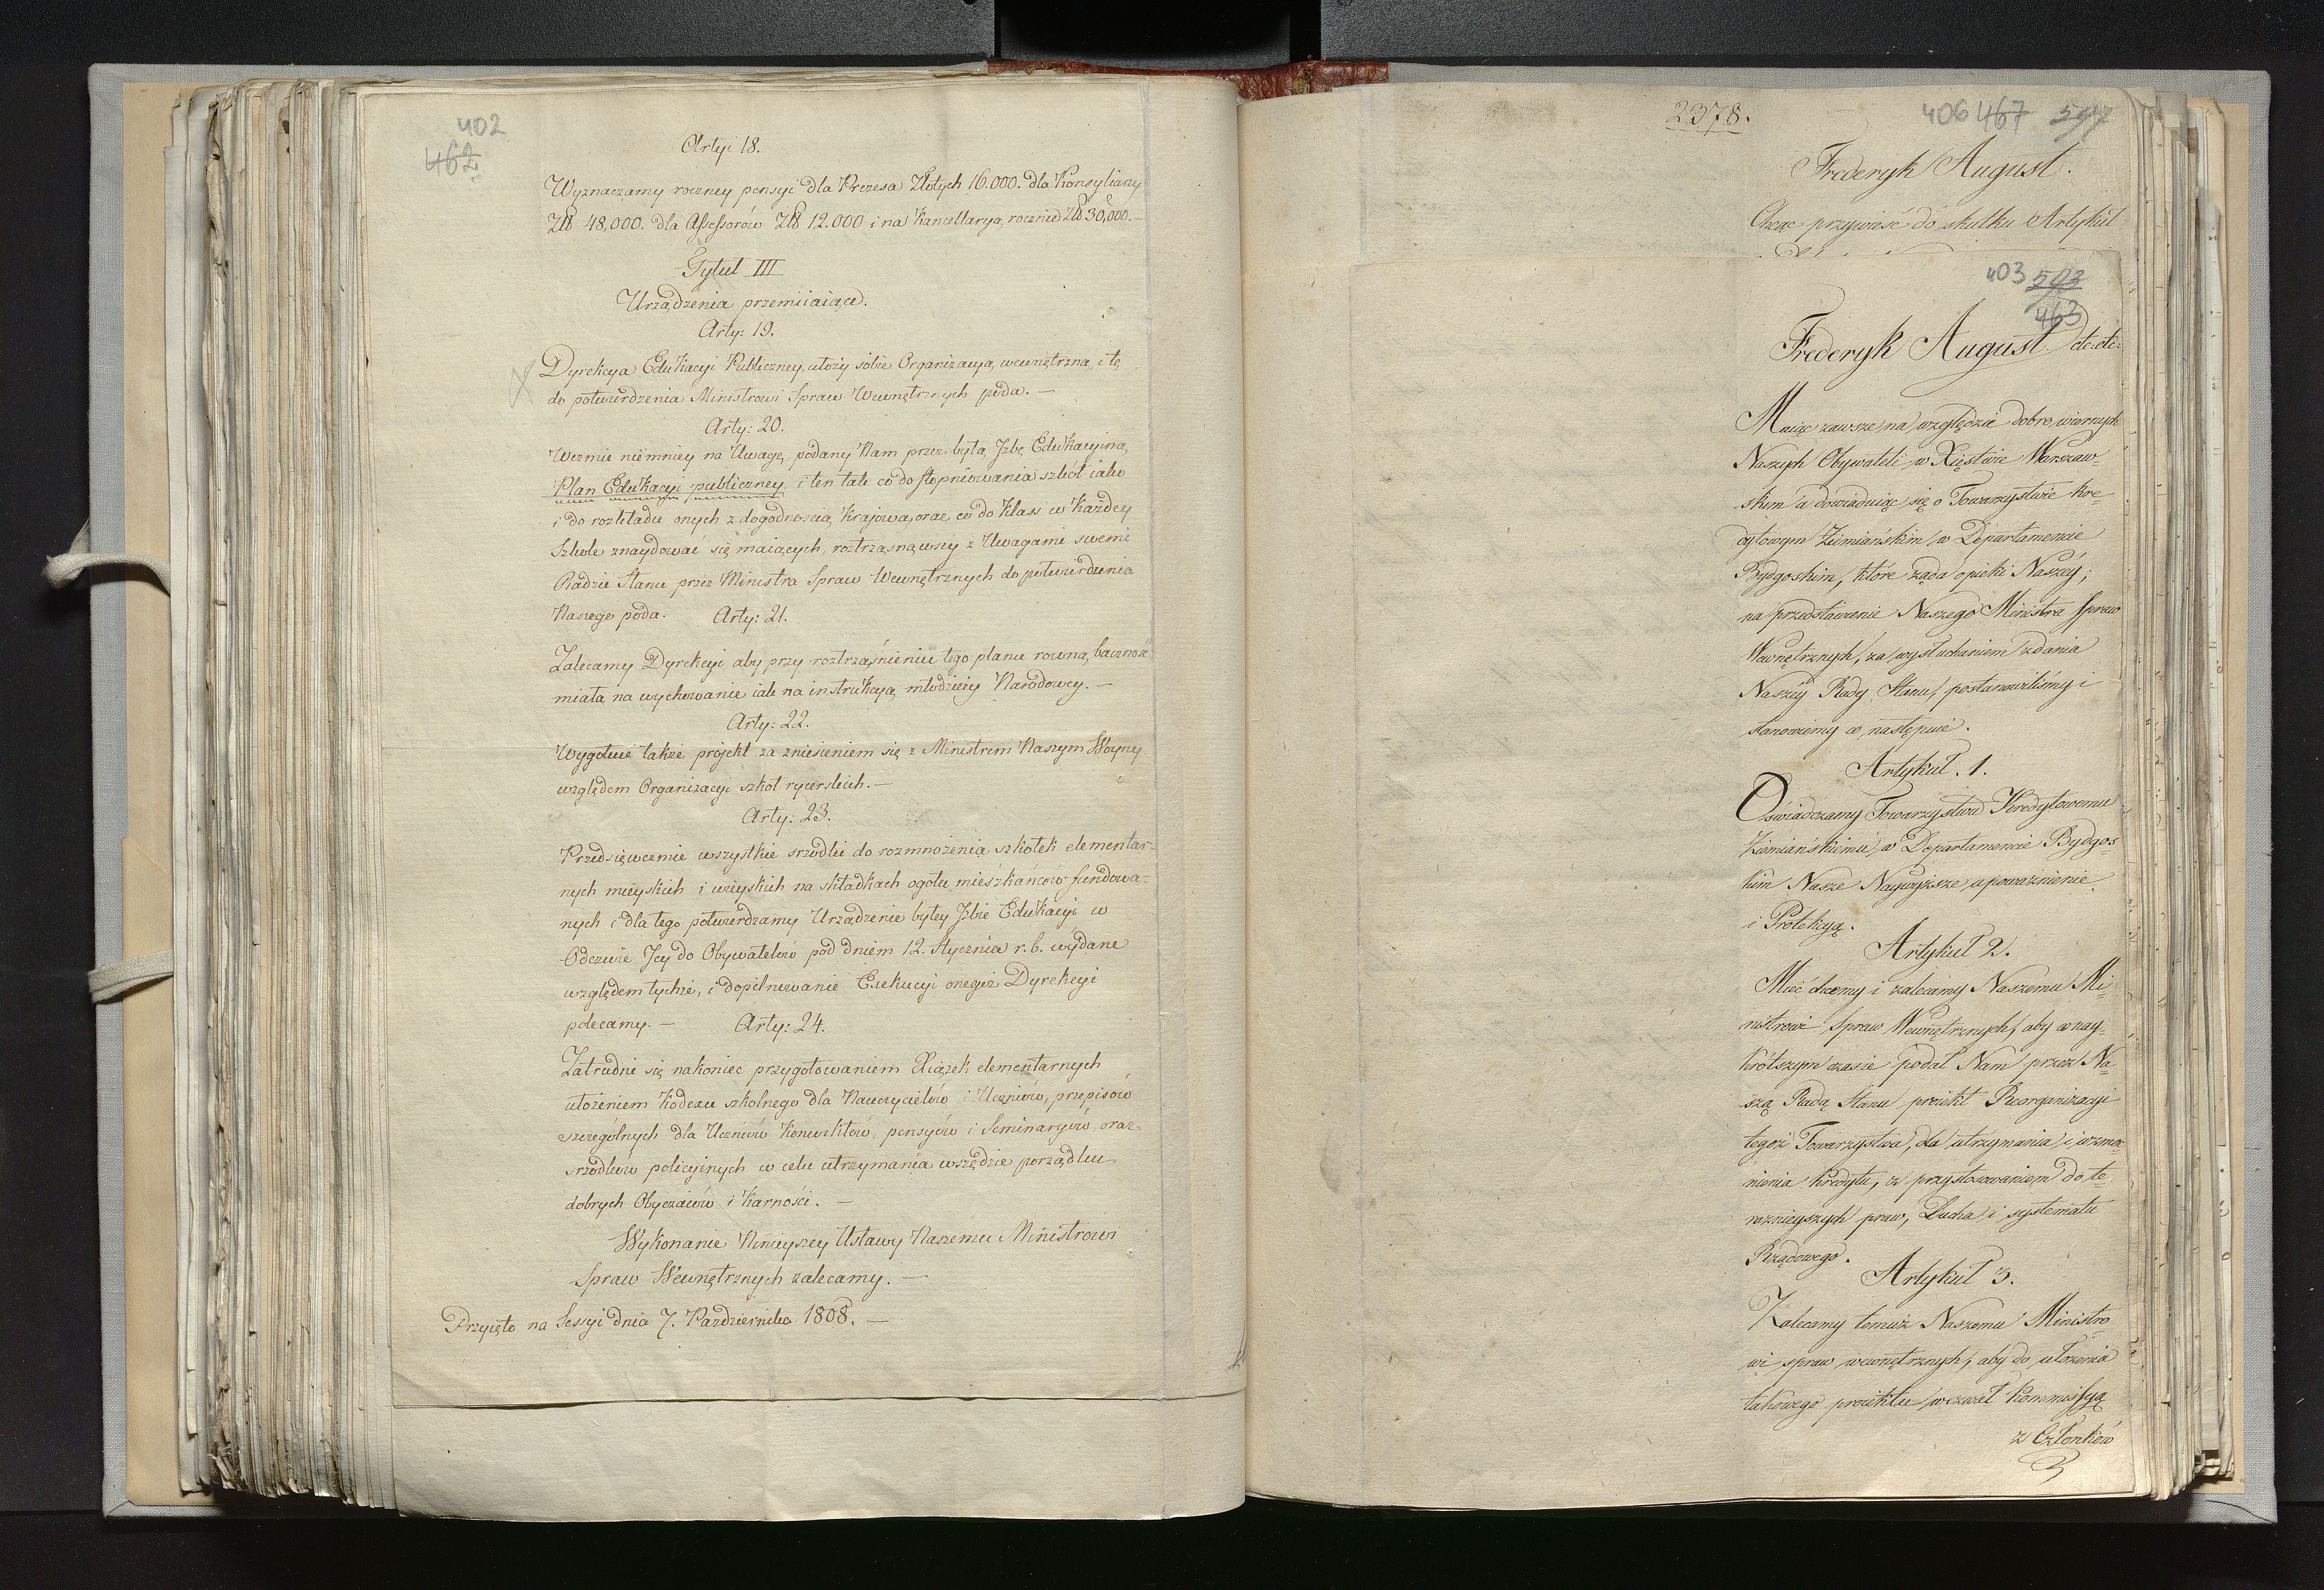 402
462
Arty: 18.
Wyznaczamy roczney pensyi dla Prezesa Złotych 16.000. dla Konsyliarzy
Złł 48,000. dla Assessorów Złł 12.000 i na Kancellaryą rocznie Złł 30,000.—
Tytuł III
Urządzenia przemiiaiące.
Arty: 19.
Dyrekcya Edukacyi Publiczney, ułoży sobie Organizacyą wewnętrzną, i tę
do potwierdzenia Ministrowi Spraw Wewnętrznych poda.—
Arty: 20.
Wezmie niemniey na Uwagę, podany Nam przez byłą Jzbę Edukacyiną,
Plan Edukacyi publiczney, i ten tak co do stopniowania szkół iako
i do rozkładu onych z dogodnością Kraiową, oraz co do Klass w Każdey
Szkole znaydować się maiących, roztrząsnąwszy z Uwagami swemi
Radzie Stanu przez Ministra Spraw Wewnętrznych do potwierdzenia
Naszego poda. Arty: 21.
Zalecamy Dyrekcyi aby przy roztrząśnieniu tego planu rowną baczność
miała na wychowanie iak na instrukcyą młodzieży Narodowey.—
Arty: 22.
Wygotuie także projekt za zniesieniem się z Ministrem Naszym Woyny
względem Organizacyi szkół rycerskich.—
Arty: 23.
Przedsięwezmie wszystkie srzodki do rozmnożenia szkołek elementar-
nych mieyskich i wieyskich na składkach ogółu mieszkancow fundowa-
nych i dla tego potwierdzamy Urządzenie byłey Jzbie Edukacyi w
Odezwie Jey do Obywatelów pod dniem 12. Stycznia r.b. wydane
względem tychże, i dopilnowanie Exekucyi onegoż Dyrekcyi
polecamy.— Arty: 24.
Zatrudni się nakoniec przygotowaniem Xiążek elementarnych
ułożeniem Kodexu szkolnego dla Nauczycielów i Uczniów, przepisów
szczególnych dla Uczniów Konwiktów, pensyów i Seminaryów, oraz
srzodków policyjnych w celu utrzymania wszędzie porządku
dobrych Obyczaiów i Karności.—
Wykonanie Ninieyszey Ustawy Naszemu Ministrowi
Spraw Wewnętrznych zalecamy.—
Przyięto na Sessyi dnia 7. Pazdziernika 1808.—
2378.
406 467 597
Frederyk August.
Chcąc przywieść do skutku Artykuł
403 593
463
Frederyk August etc. etc:
Maiąc zawsze na względzie dobro wiernych
Naszych Obywateli w Xięstwie Warszaw-
skim a dowiaduiąc się o Towarzystwie Kre-
dytowym Ziemiańskim w Departamencie
Bydgoskim, które żąda opieki Naszéy;
na przedstawienie Naszego Ministra Spraw
Wewnętrznych, za wysłuchaniem zdania
Naszéy Rady Stanu, postanowiliśmy i
stanowiemy co następuie.
Artykuł. 1.
Oświadczamy Towarzystwu Kredytowemu
Ziemiańskiemu w Departamencie Bydgos-
kim Nasze Naywyższe upoważnienie
i Protekcyą.
Artykuł 2.
Mieć chcemy i zalecamy Naszemu Mi-
nistrowi Spraw Wewnętrznych, aby w nay-
krótszym czasie podał Nam przez Na-
szą Radę Stanu proiekt Reorganizacyi
tegoż Towarzystwa, dla utrzymania i wzmoc-
nienia kredytu, z przystosowaniem do te-
raznieyszych praw, Ducha i systematu
Rządowego.
Artykuł 3.
Zalecamy temuż Naszemu Ministro-
wi spraw wewnętrznych, aby do ułożenia
takowego proiektu wezwał Kommissyą
z Członków